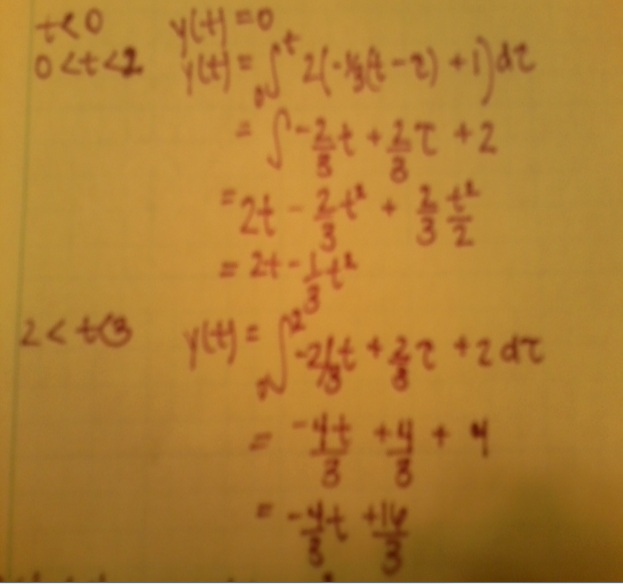 t<0 y(t)=0
0<t<2 y(t)= ₀∫ᵗ 2(-⅓(t-τ)+1)dτ
= ∫ -2/3 t + 2/3 τ + 2
= 2t - 2/3 t² + 2/3 t²/2
= 2t - 1/3 t²
2<t<3 y(t)= ₀∫² -2/3 t + 2/3 τ + 2 dτ
= -4t/3 + 4/3 + 4
= -4/3 t + 16/3